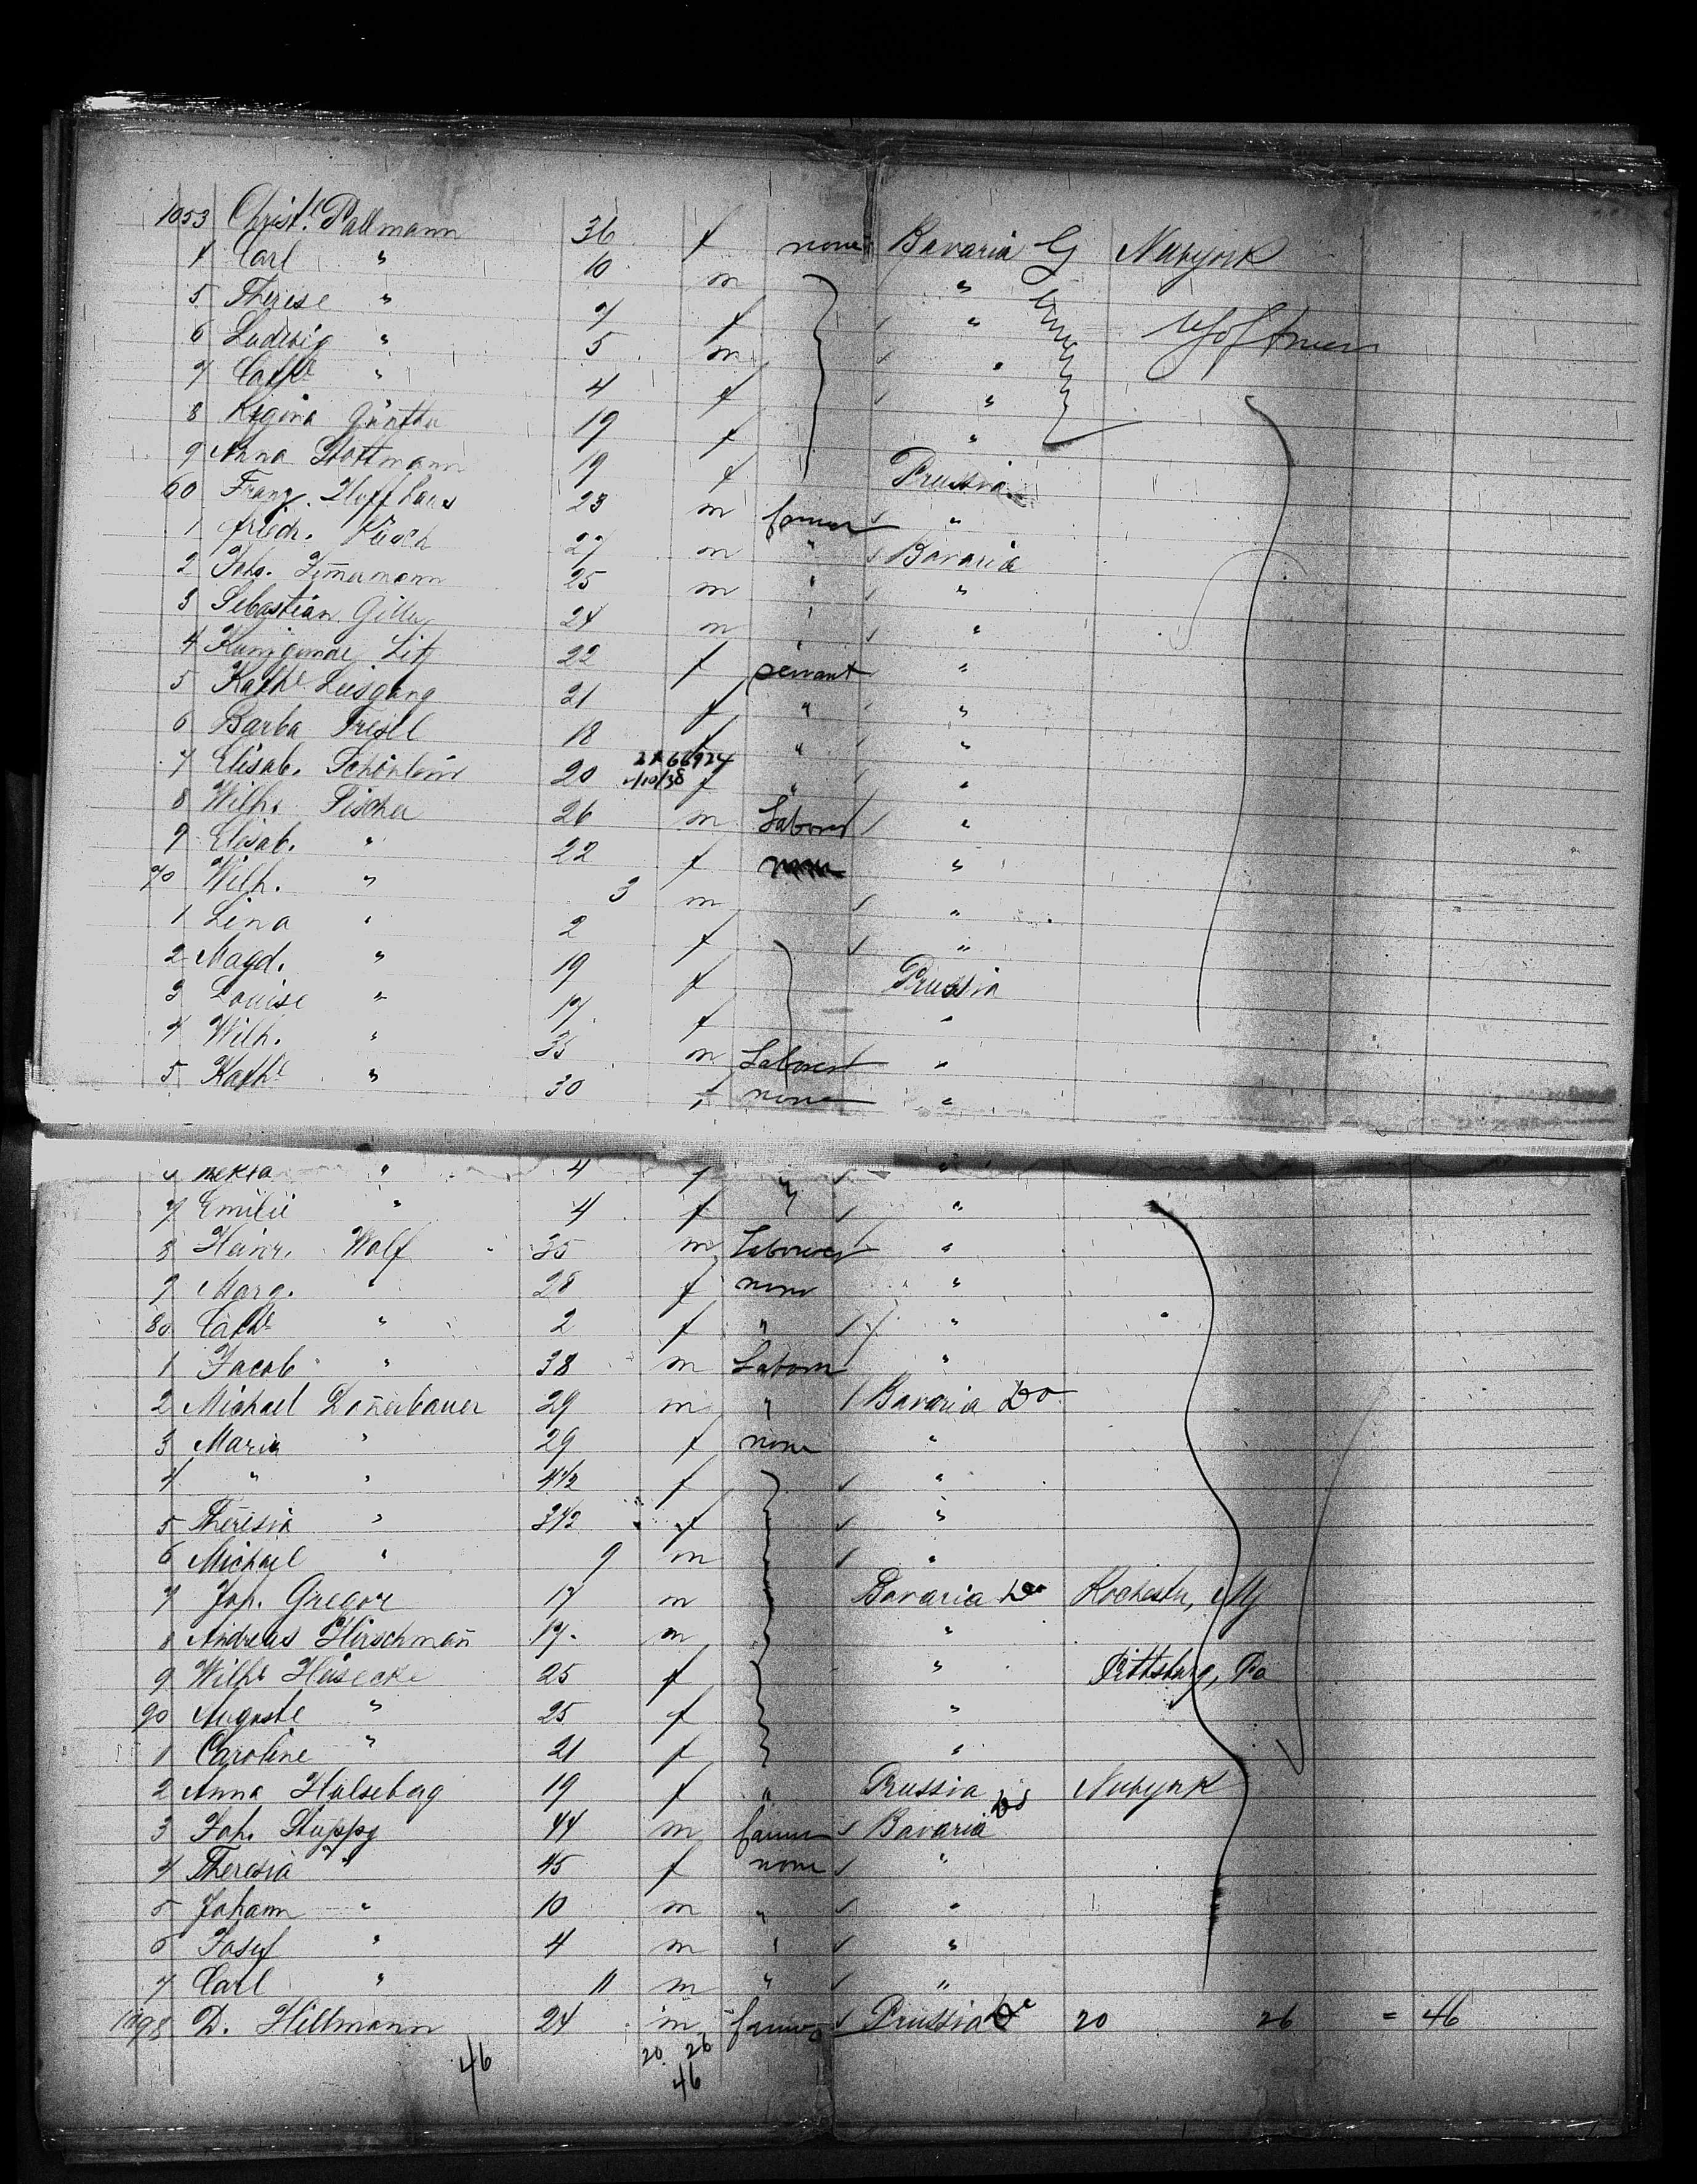 1053 Christe. Pallmann 36 f none Bavaria G Newyork
4 Carl " 10 m "
5 Therese " 7 f "
6 Ludwig " 5 m "
7 Cathe " 4 f "
8 Regina Günther 19 f "
9 Anna 19 f Prussia
60 Franz. 23 m farmer "
1 Friedr. 27 m " Bavaria
2 Johs. Zimermann 25 m " "
3 Sebastian 24 m " "
4 Kunigunde Litz 22 f servant "
5 Kathe Leisgang 21 f " "
6 Barba 18 f " "
2X66924
7 Elisab. Schönlein 20 1/10/38 f " "
8 Wilh. Fischer 26 m Labourer "
9 Elisab. " 22 f none "
70 Wilh. " 3 m "
1 Lina " 2 f "
2 Magd. " 19 f Prussia
3 Louise " 17 f "
4 Wilh. " 35 m Labourer "
5 Kathe " 30 f none "
" 4 f " "
7 Emilie " 4 f " "
8 Heinr. Wolf 35 m Labourer "
9 Marg. " 28 f none "
80 Cathe " 2 f " "
1 Jacob " 38 m Labourer "
2 Michael 29 m " Bavaria Do
3 Maria " 29 f none "
4 " " 4 1/2 f "
5 Theresia " 3 1/2 f "
6 Michael " 9 m "
7 Joh. Gregor 17 m Bavaria Do Rochester, NY
8 Andreas Hirschman̄ 17 m "
9 Wilhe 25 f " Pittsburg, Pa
90 Auguste " 25 f "
1 Caroline " 21 f "
2 Anna Halseberg 19 f " Prussia Newyork
3 Joh. Stuppy 44 m farmer Bavaria Do
4 Theresia " 45 f none "
5 Johann " 10 m " "
6 Josef " 4 m " "
7 Carl " 11 m " "
1098 D. Hillmann 24 m farmer Prussia Do 20 26 = 46
46 20 26
46